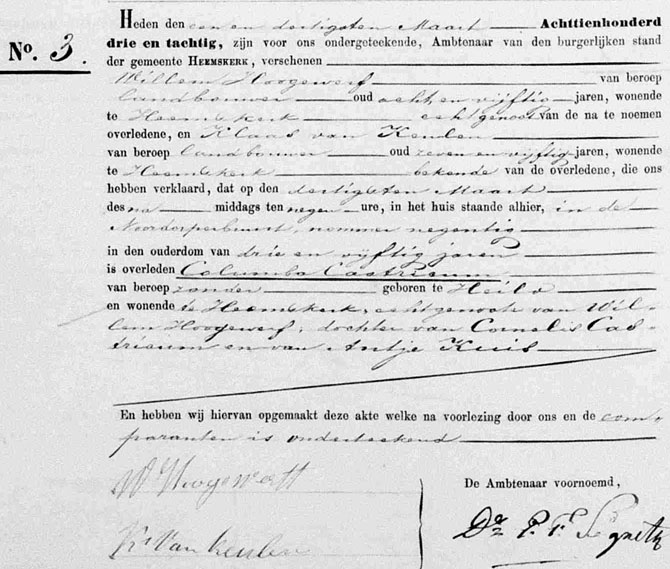 Heden den een en dertigsten Maart Achttienhonderd
No. 3.
drie en tachtig, zijn voor ons ondergeteekende, Ambtenaar van den burgerlijken stand
der gemeente HEEMSKERK, verschenen
Willem Hoogewerf van beroep
landbouwer oud acht en vijftig jaren, wonende
te Heemskerk echtgenoot van de na te noemen
overledene, en Klaas van Keulen
van beroep landbouwer oud zeven en vijftig jaren, wonende
te Heemskerk bekende van de overledene, die ons
hebben verklaard, dat op den dertigsten Maart
des na middags ten negen ure, in het huis staande alhier, in de
Noordorperbuurt, nommer negentig
in den ouderdom van drie en vijftig jaren
is overleden Columba Castricum
van beroep zonder geboren te Heilo
en wonende te Heemskerk, echtgenoote van Wil-
lem Hoogewerf, dochter van Cornelis Cas-
tricum en van Antje Kuis
En hebben wij hiervan opgemaakt deze akte welke na voorlezing door ons en de com-
paranten is onderteekend
W Hoogewerf
De Ambtenaar voornoemd,
Ks Van keulen
Dr. P. F.